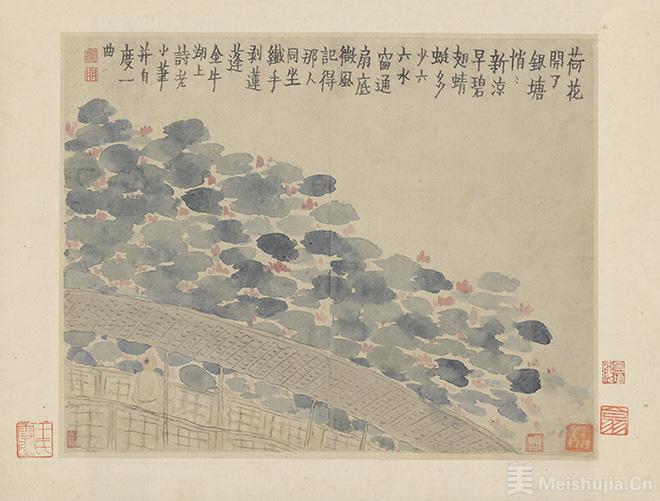 荷花
開了
銀塘
悄〻
新涼
早碧
翅蜻
蜓多
少六
六水
窗通
扇底
微風
記得
那人
同坐
纖手
剝蓮
蓬
金牛
湖上
詩老
小筆
并自
度一
曲
美 Meishujia.Cn